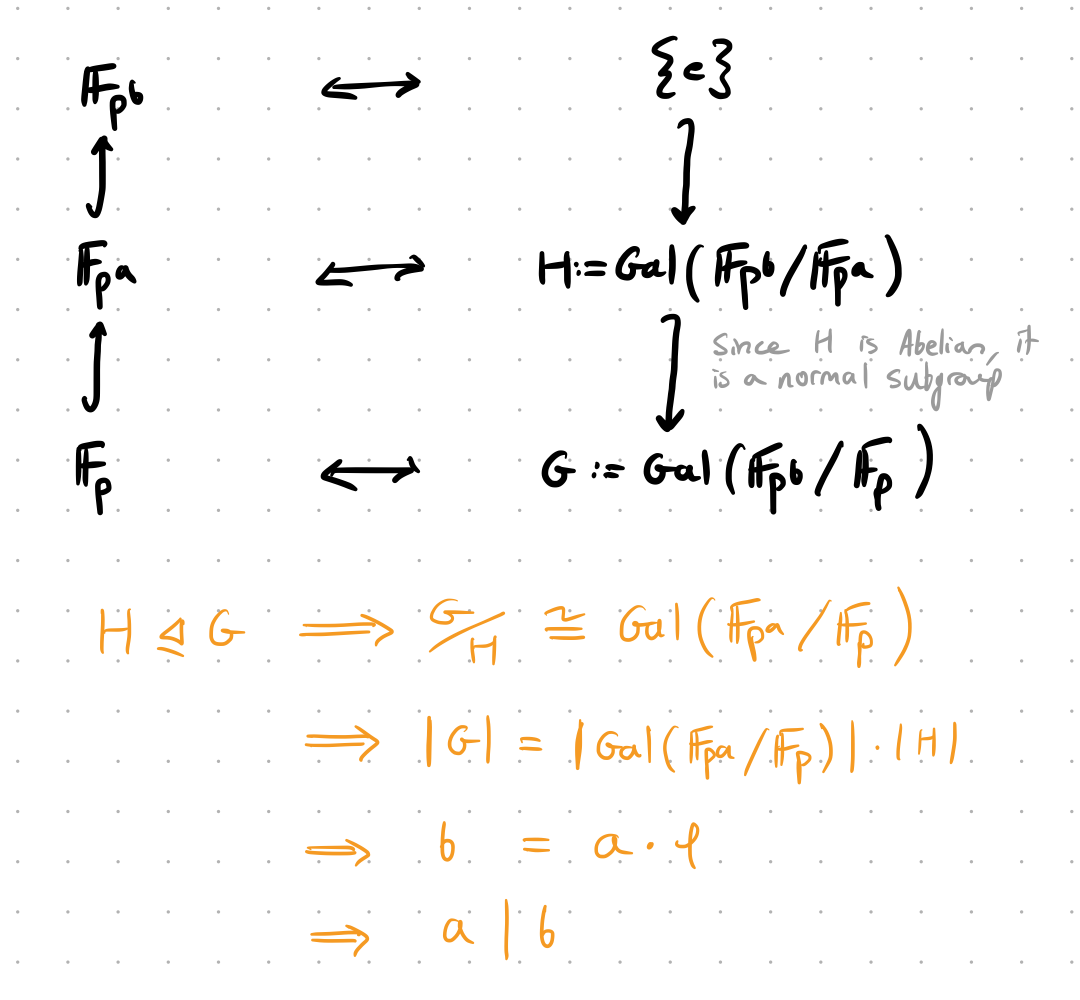 𝔽_{p^b} ⟷ {e}
𝔽_{p^a} ⟷ H := Gal(𝔽_{p^b}/𝔽_{p^a})
Since H is Abelian, it
is a normal subgroup
𝔽_p ⟷ G := Gal(𝔽_{p^b}/𝔽_p)
H ⊴ G ⟹ G/H ≅ Gal(𝔽_{p^a}/𝔽_p)
⟹ |G| = |Gal(𝔽_{p^a}/𝔽_p)| · |H|
⟹ b = a · ℓ
⟹ a | b